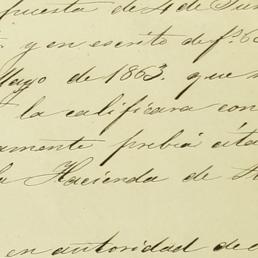 puesta de 4 de Jun
y en escrito de f.º 6
Mayo de 1863. que
la calificara con
amente prebia cita
la Hacienda de
en autoridad de c